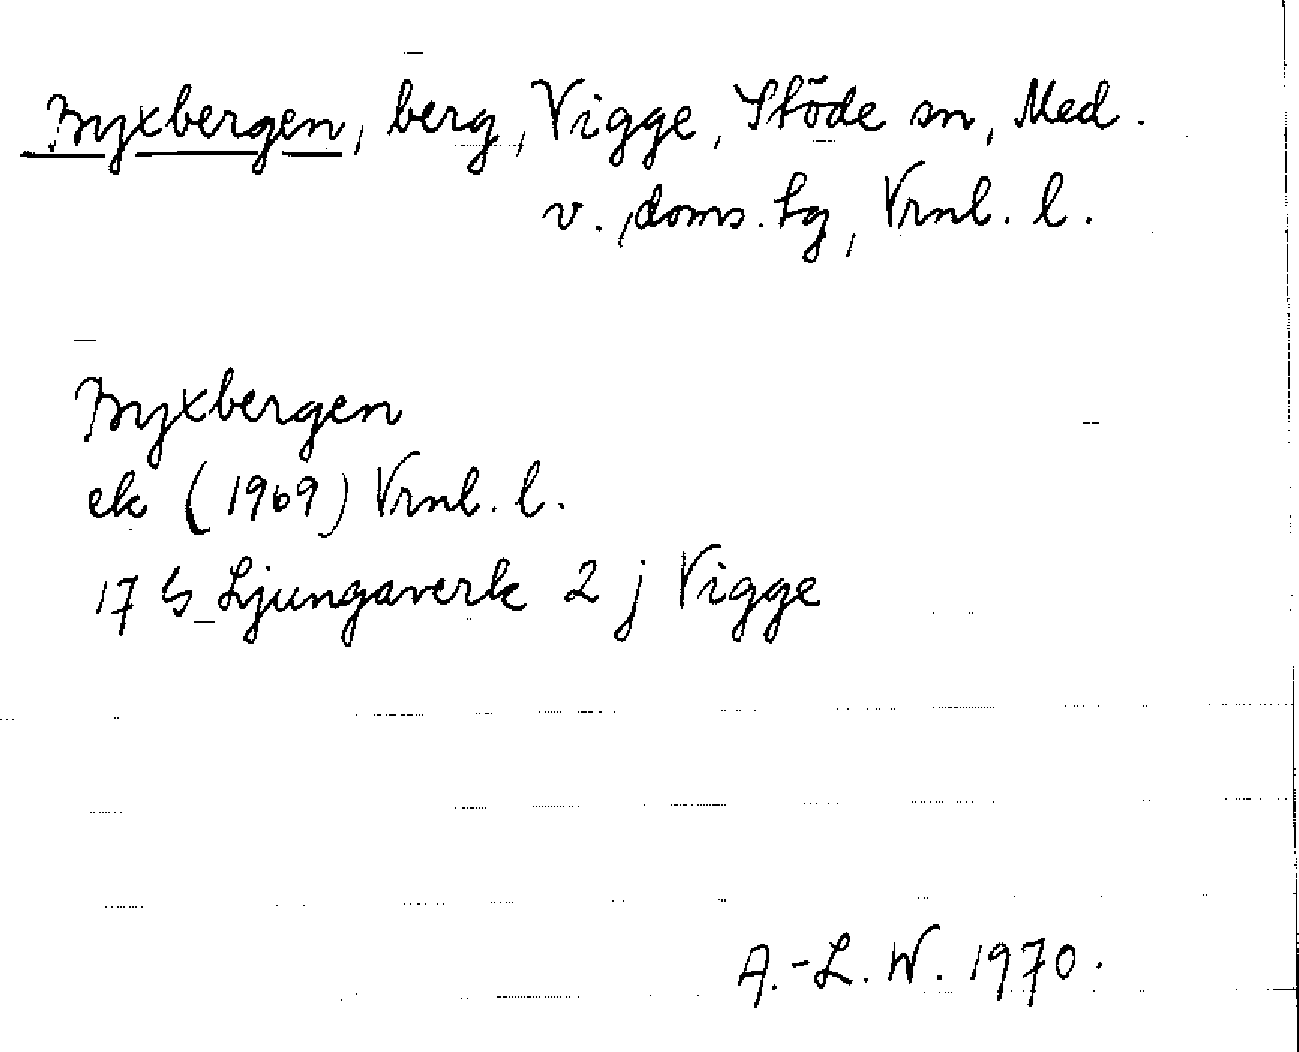 Byxbergen, berg, Vigge, Stöde sn, Med.
v. doms. tg, Vrnl. l.
Byxbergen
ek (1969) Vrnl. l.
17 G Ljungaverk 2 j Vigge
A.-L. W. 1970.